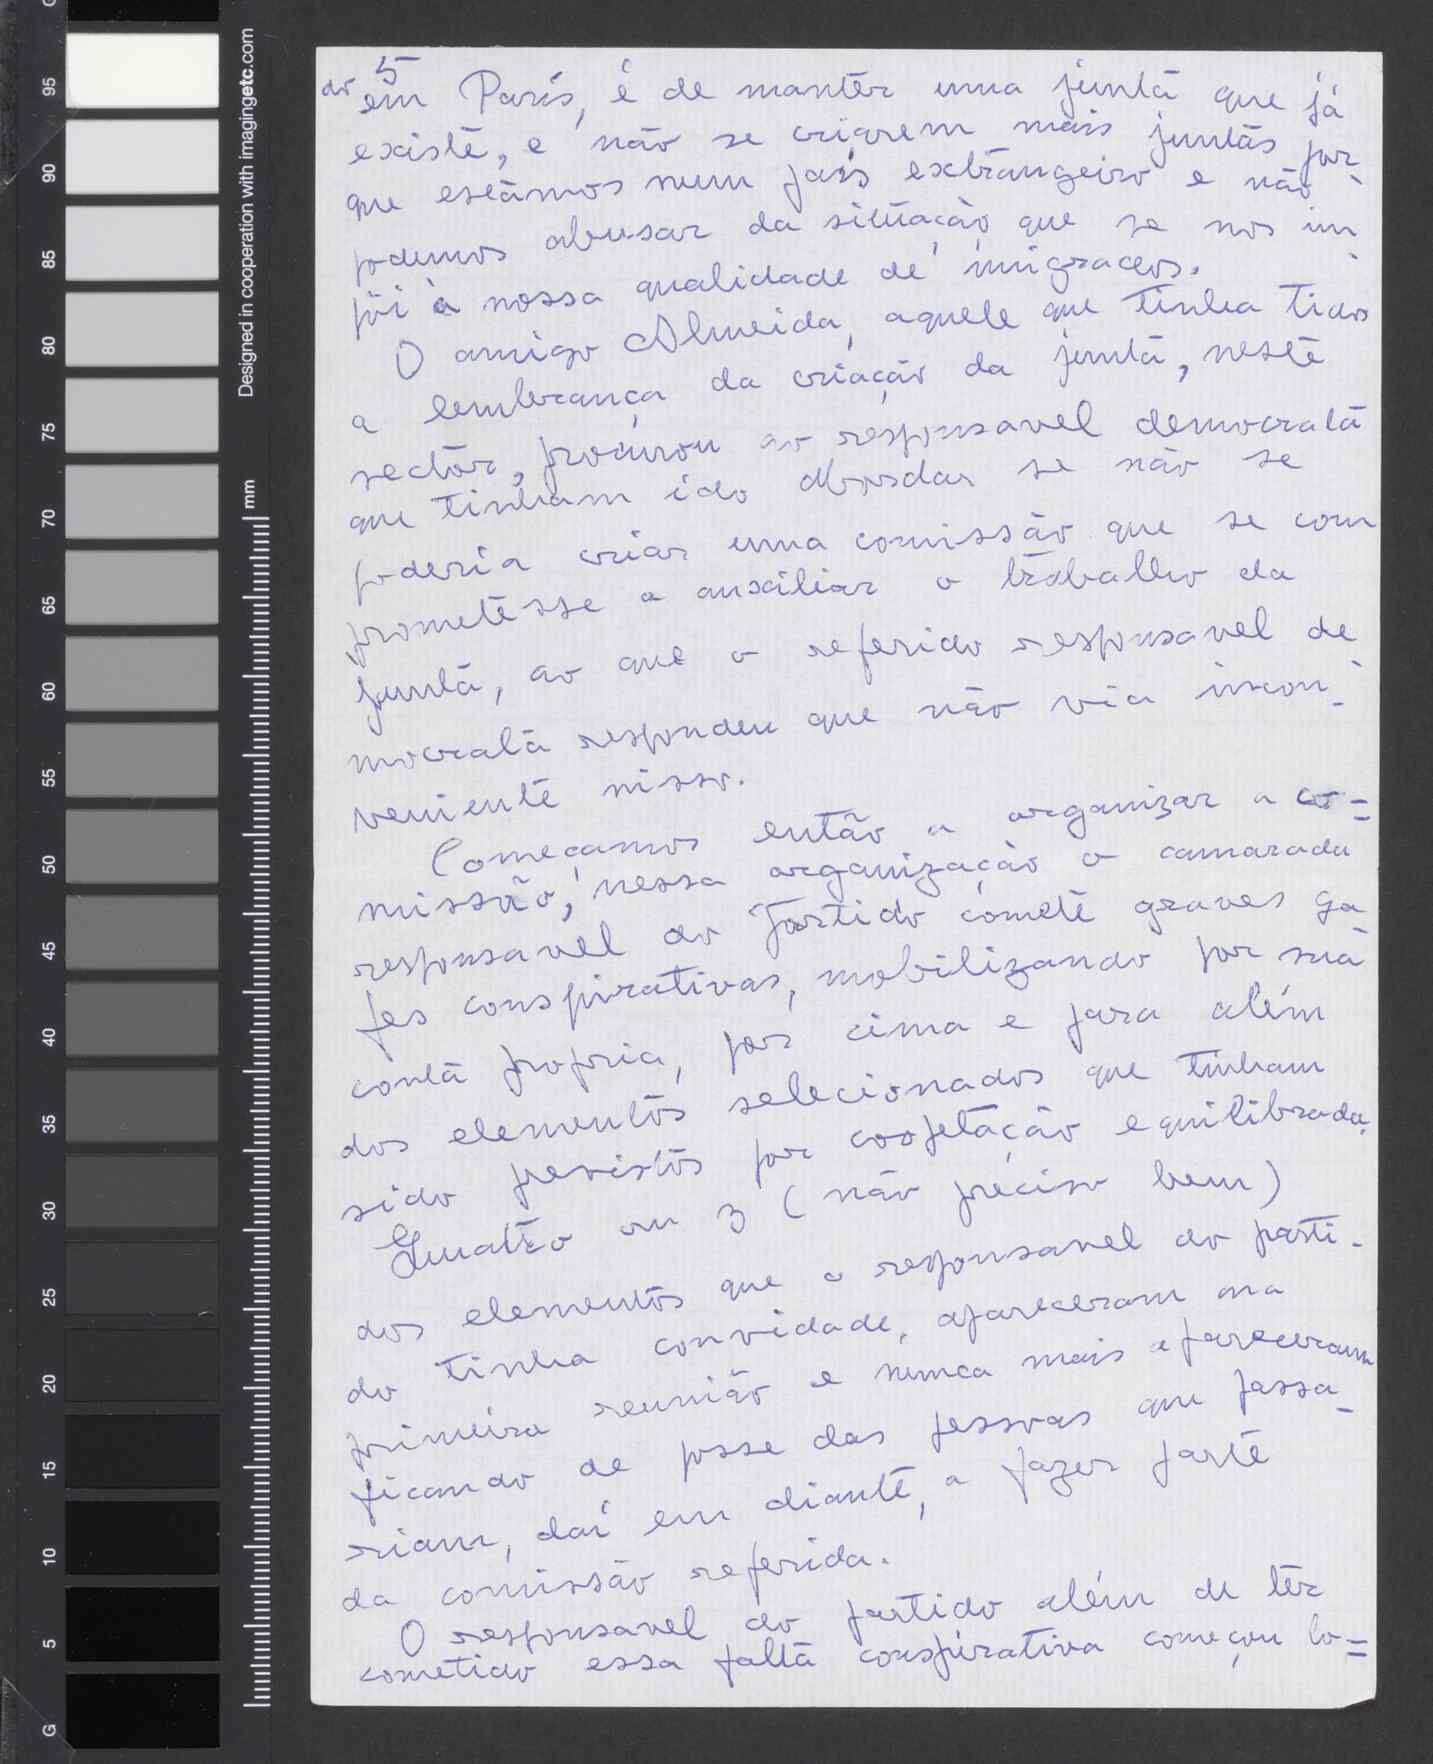 5
do em Paris, é de mantêr uma junta que já
existe, e não se criarem mais juntas por
que estâmos num país extrangeiro e não
podemos abusar da situação que se nos im-
pôi à nossa qualidade de imigrados.
O amigo Almeida, aquele que tinha tido
a lembrança da criação da junta, neste
sector, procurou ao responsavel democrata
que tinham ido abordar se não se
poderia criar uma comissão que se com
prometesse a auxiliar o trabalho da
junta, ao que o referido responsavel de
mocrata respondeu que não via incon-
veniente nisso.
Começamos então a organizar a co=
missão, nessa organização o camarada
responsavel do Partido comete graves ga
fes conspirativas, mobilizando por sua
conta propria, por cima e para além
dos elementos selecionados que tinham
sido previstos por cooptação equilibrada.
Quatro ou 3 (não preciso bem)
dos elementos que o responsavel do parti-
do tinha convidade, apareceram na
primeira reunião e nunca mais apareceram
ficando de posse das pessoas que passa-
riam, daí em diante, a fazer parte
da comissão referida.
O responsavel do partido além de têr
cometido essa falta conspirativa começou lo=
95
90
85
80
75
70
65
60
55
50
45
40
35
30
25
20
15
10
5
G
mm
Designed in cooperation with imagingetc.com